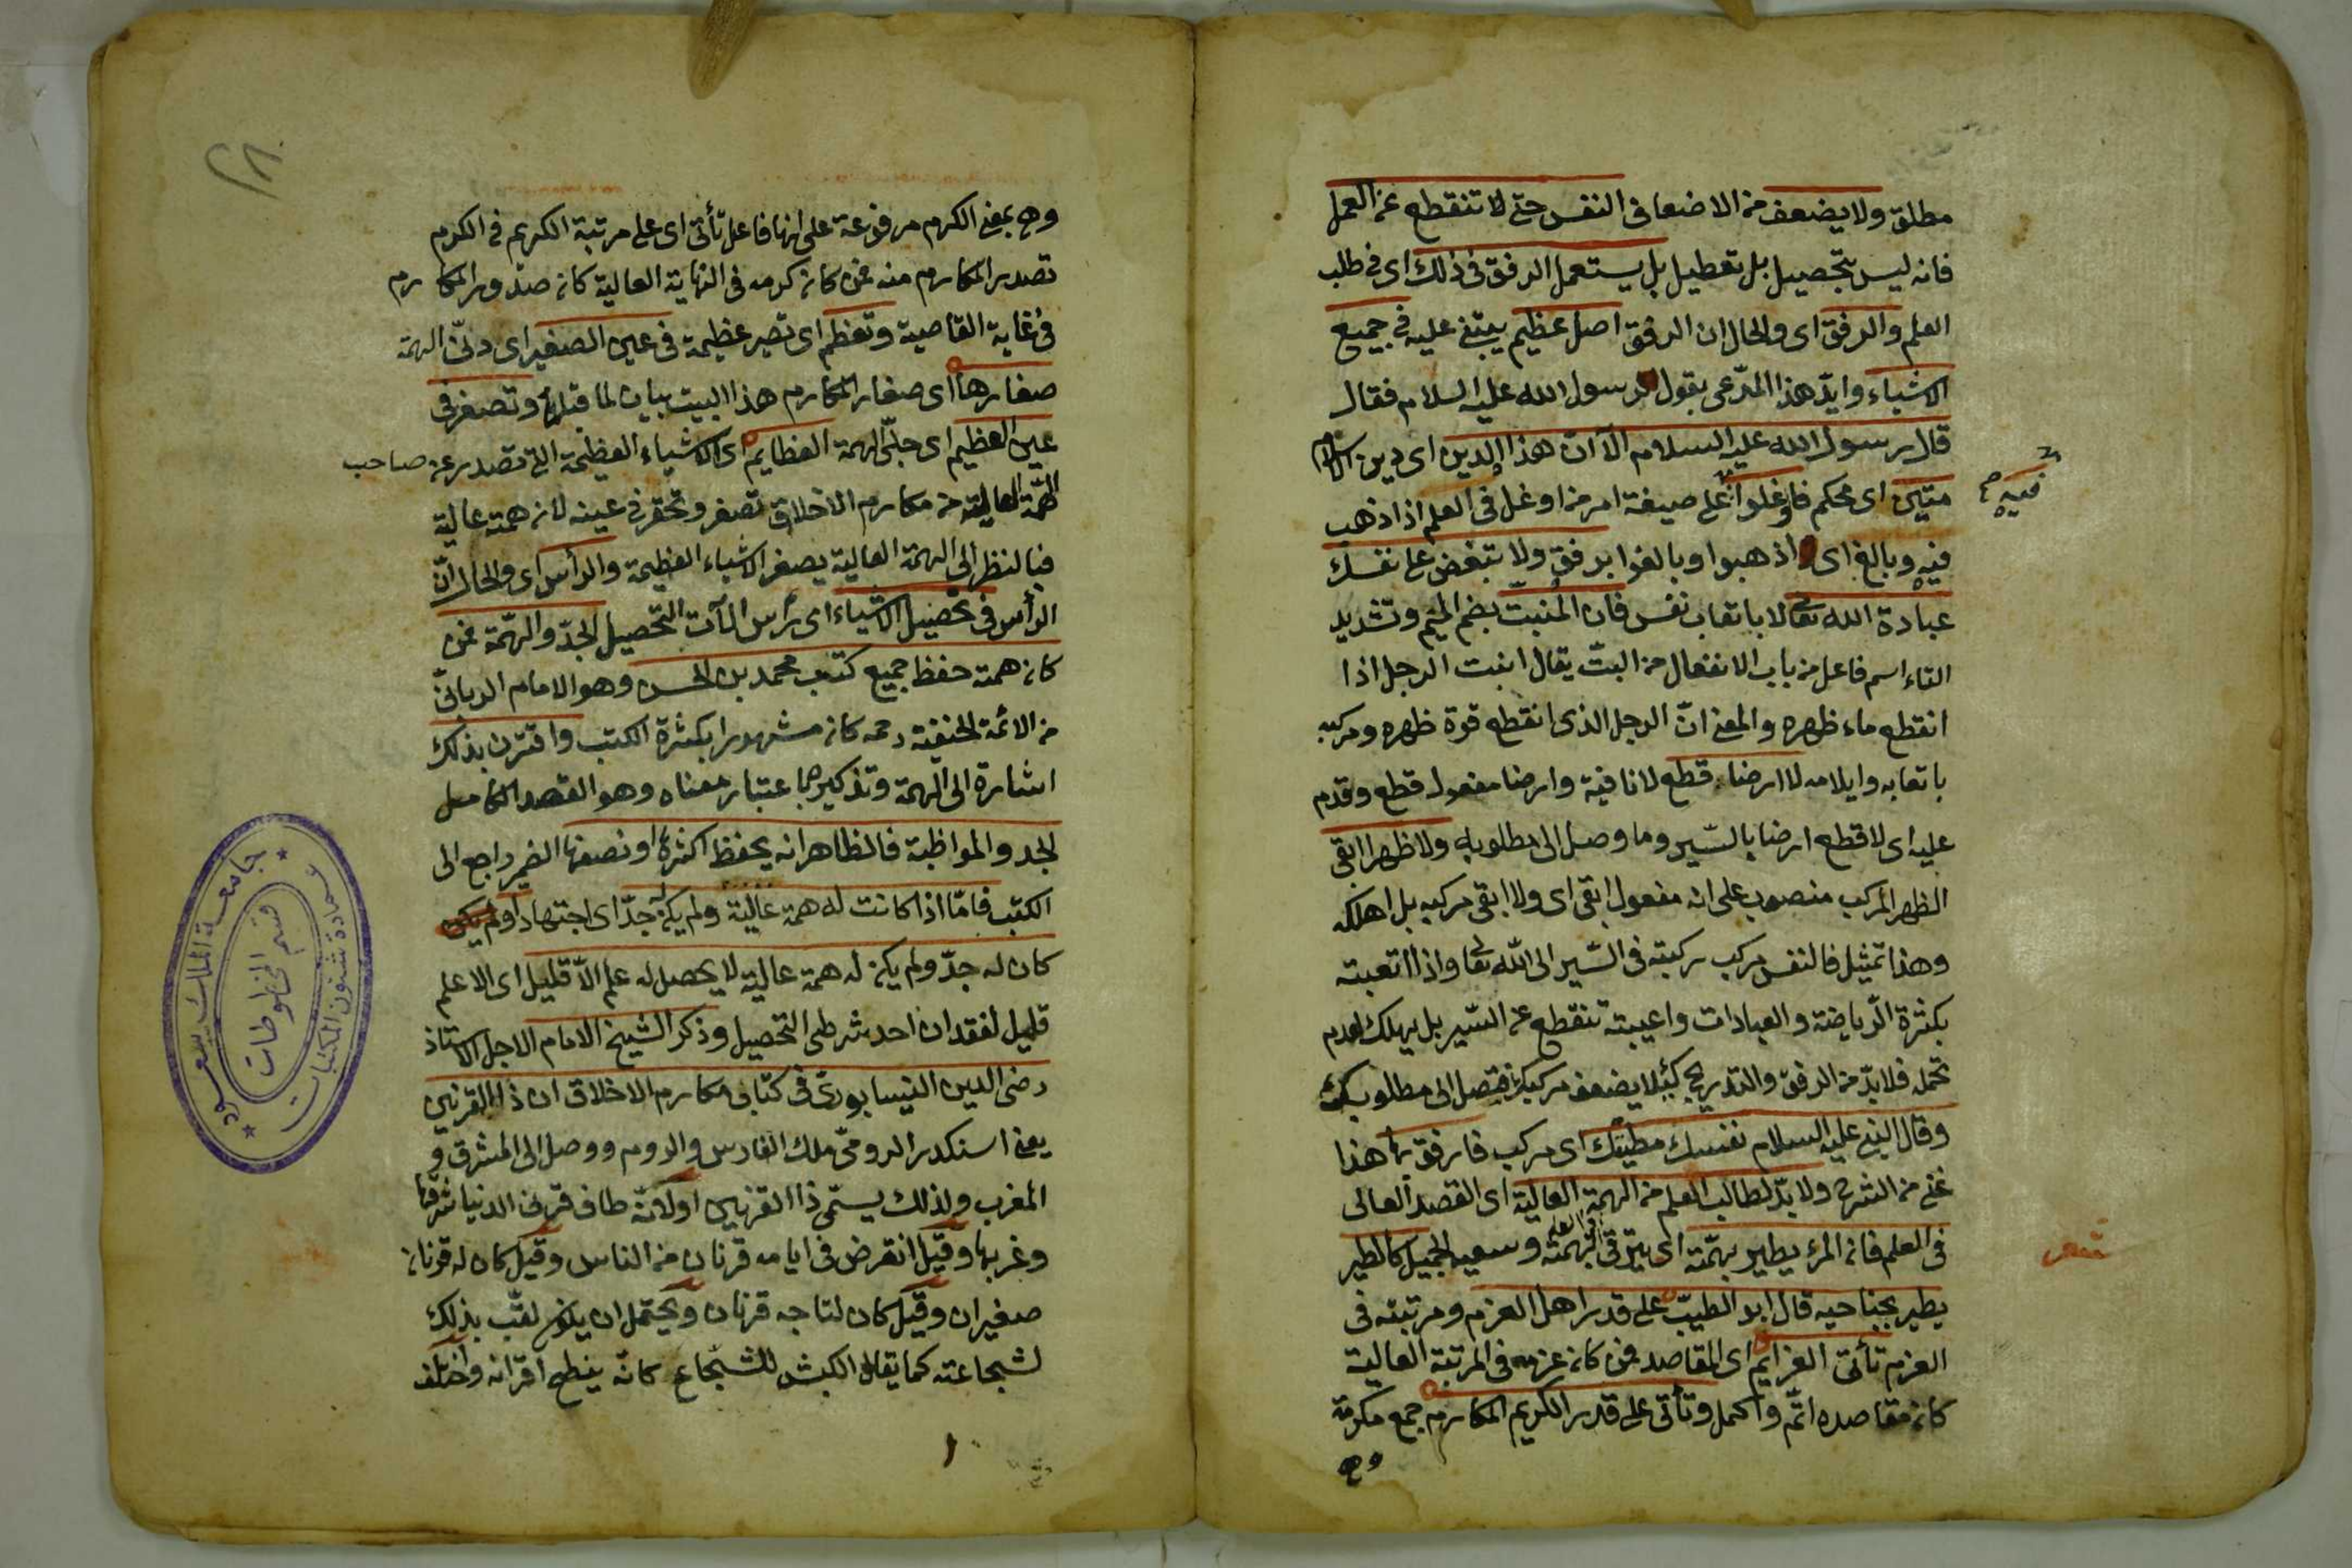 مطلق ولا يضعف من الاضعاف النفس حتى لا تنقطع عن العمل
فانه ليس بتحصيل بل تعطيل بل يستعمل الرفق فى ذلك اى فى طلب
العلم والرفق اى والحال ان الرفق اصل عظيم يبتنى عليه فى جميع
الاشياء وايد هذا المدّعى بقول رسول الله عليه السلام فقال
قال رسول الله عليه السلام الآ ان هذا الدين اى دين الاسلام
متين اى محكم فاوغلوا على صيغة امر من اوغل فى العلم اذا ذهب
فيه
فيه وبالغ اى اذهبوا وبالغوا برفق ولا تبغض على نفسك
عبادة الله تعالى باتعاب نفس فان المنبتّ بضم الميم وتشديد
التاء اسم فاعل من باب الانفعال من البتّ يقال انبت الرجل اذا
انقطع ماء ظهره والمعنى انّ الرجل الذى انقطع قوة ظهره ومركبه
باتعابه وايلامه لا ارضا قطع لا نافية وارضا مفعول قطع وقدم
عليه اى لا قطع ارضا بالسّير وما وصل الى مطلوبه ولا ظهرا ابقى
الظهر المركب منصوب على انه مفعول ابقى اى ولا ابقى مركبه بل اهلكه
وهذا تمثيل فالنفس مركب ركبته فى السّير الى الله تعا واذا اتعبته
بكثرة الرّياضة والعبادات واعييته تنقطع عن السّير بل يهلك لعدم
تحمله فلا بدّ من الرفق والتدريج كيلا يضعف مركبك فتصل الى مطلوبك
وقال النبى عليه السلام نفسك مطيّتك اى مركب فارفق بها هذا
غنى من الشرح ولا بدّ لطالب العلم من الهمة العالية اى القصد العالى
فى العلم فان المرء يطير بهمّته اى يترقى بهمته وسعيه الجميل كالطير
يطير بجناحيه قال ابو الطيبّ على قدر اهل العزم ومرتبته فى
العزم تأتى العزايم اى المقاصد فمن كان عزمه فى المرتبة العالية
كان مقاصده اتمّ واكمل وتأتى على قدر الكريم المكارم جمع مكرمة
وهى
٢٨
وهى بمعنى الكرم مرفوعة على انها فاعل تأتى اى على مرتبة الكريم فى الكرم
تصدر المكارم منه فمن كان كرمه فى النهاية العالية كان صدور المكارم
فى غاية القاصية وتعظم اى تصير عظيمة فى عين الصغير اى دنىّ الهمّة
صغارها اى صغار المكارم هذا البيت بيان لما قبله وتصغر فى
عين العظيم اى جلىّ الهمة العظايم اى الاشياء العظيمة التى تصدر عن صاحب
الهمّة العالية من مكارم الاخلاق تصغر وتحقر فى عينه لان همته عالية
فبالنظر الى الهمة العالية يصغر الاشياء العظيمة والرأس اى والحال انّ
الرأس فى تحصيل الاشياء اى رأس الآت التحصيل الجدّ والهمّة فمن
كان همته حفظ جميع كتب محمد بن الحسن وهو الامام الربانىّ
من الائمة الحنفية رحمه كان مشهورا بكثرة الكتب واقترن بذلك
اشارة الى الهمة وتذكيرها باعتبار معناه وهو القصد الكامل
الجد والمواظبة فالظاهر انه يحفظ اكثرها او نصفها الضمير راجع الى
الكتب فامّا اذا كانت له همة عالية ولم يكن له جدّ اى اجتهاد او
كان له جدّ ولم يكن له همة عالية لا يحصل له علم الاّ قليل اى الا علم
قليل لفقدان احد شرطى التحصيل وذكر الشيخ الامام الاجل الاستاذ
رضى الدين النيسابورىّ فى كتاب مكارم الاخلاق ان ذا القرنين
يعنى اسكندر الرومىّ ملك الفارس والروم ووصل الى المشرق و
المغرب ولذلك يسمّى ذا القرنين او لانّه طاف قرنى الدنيا شرقها
وغربها وقيل انقرض فى ايامه قرنان من الناس وقيل كان له قرنان
صغيران وقيل كان لتاجه قرنان ويحتمل ان يكون لقّب بذلك
لشجاعته كما يقال الكبش للشجاع كانّه ينطح اقرانه واختلف
جامعة الملك سعود
عمادة شئون المكتبات
قسم المخطوطات